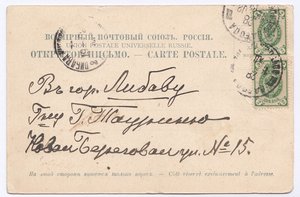 ВСЕМІРНЫЙ ПОЧТОВЫЙ СОЮЗЪ. РОССІЯ.
UNION POSTALE UNIVERSELLE RUSSIE.
ОТКРЫТОЕ ПИСЬМО. — CARTE POSTALE.
Въ гор. Либаву
Г. Таурминю
Новая Береговая ул. № 15.
На этой сторонѣ пишется только адресъ. — Côté réservé exclusivement à l'adresse.